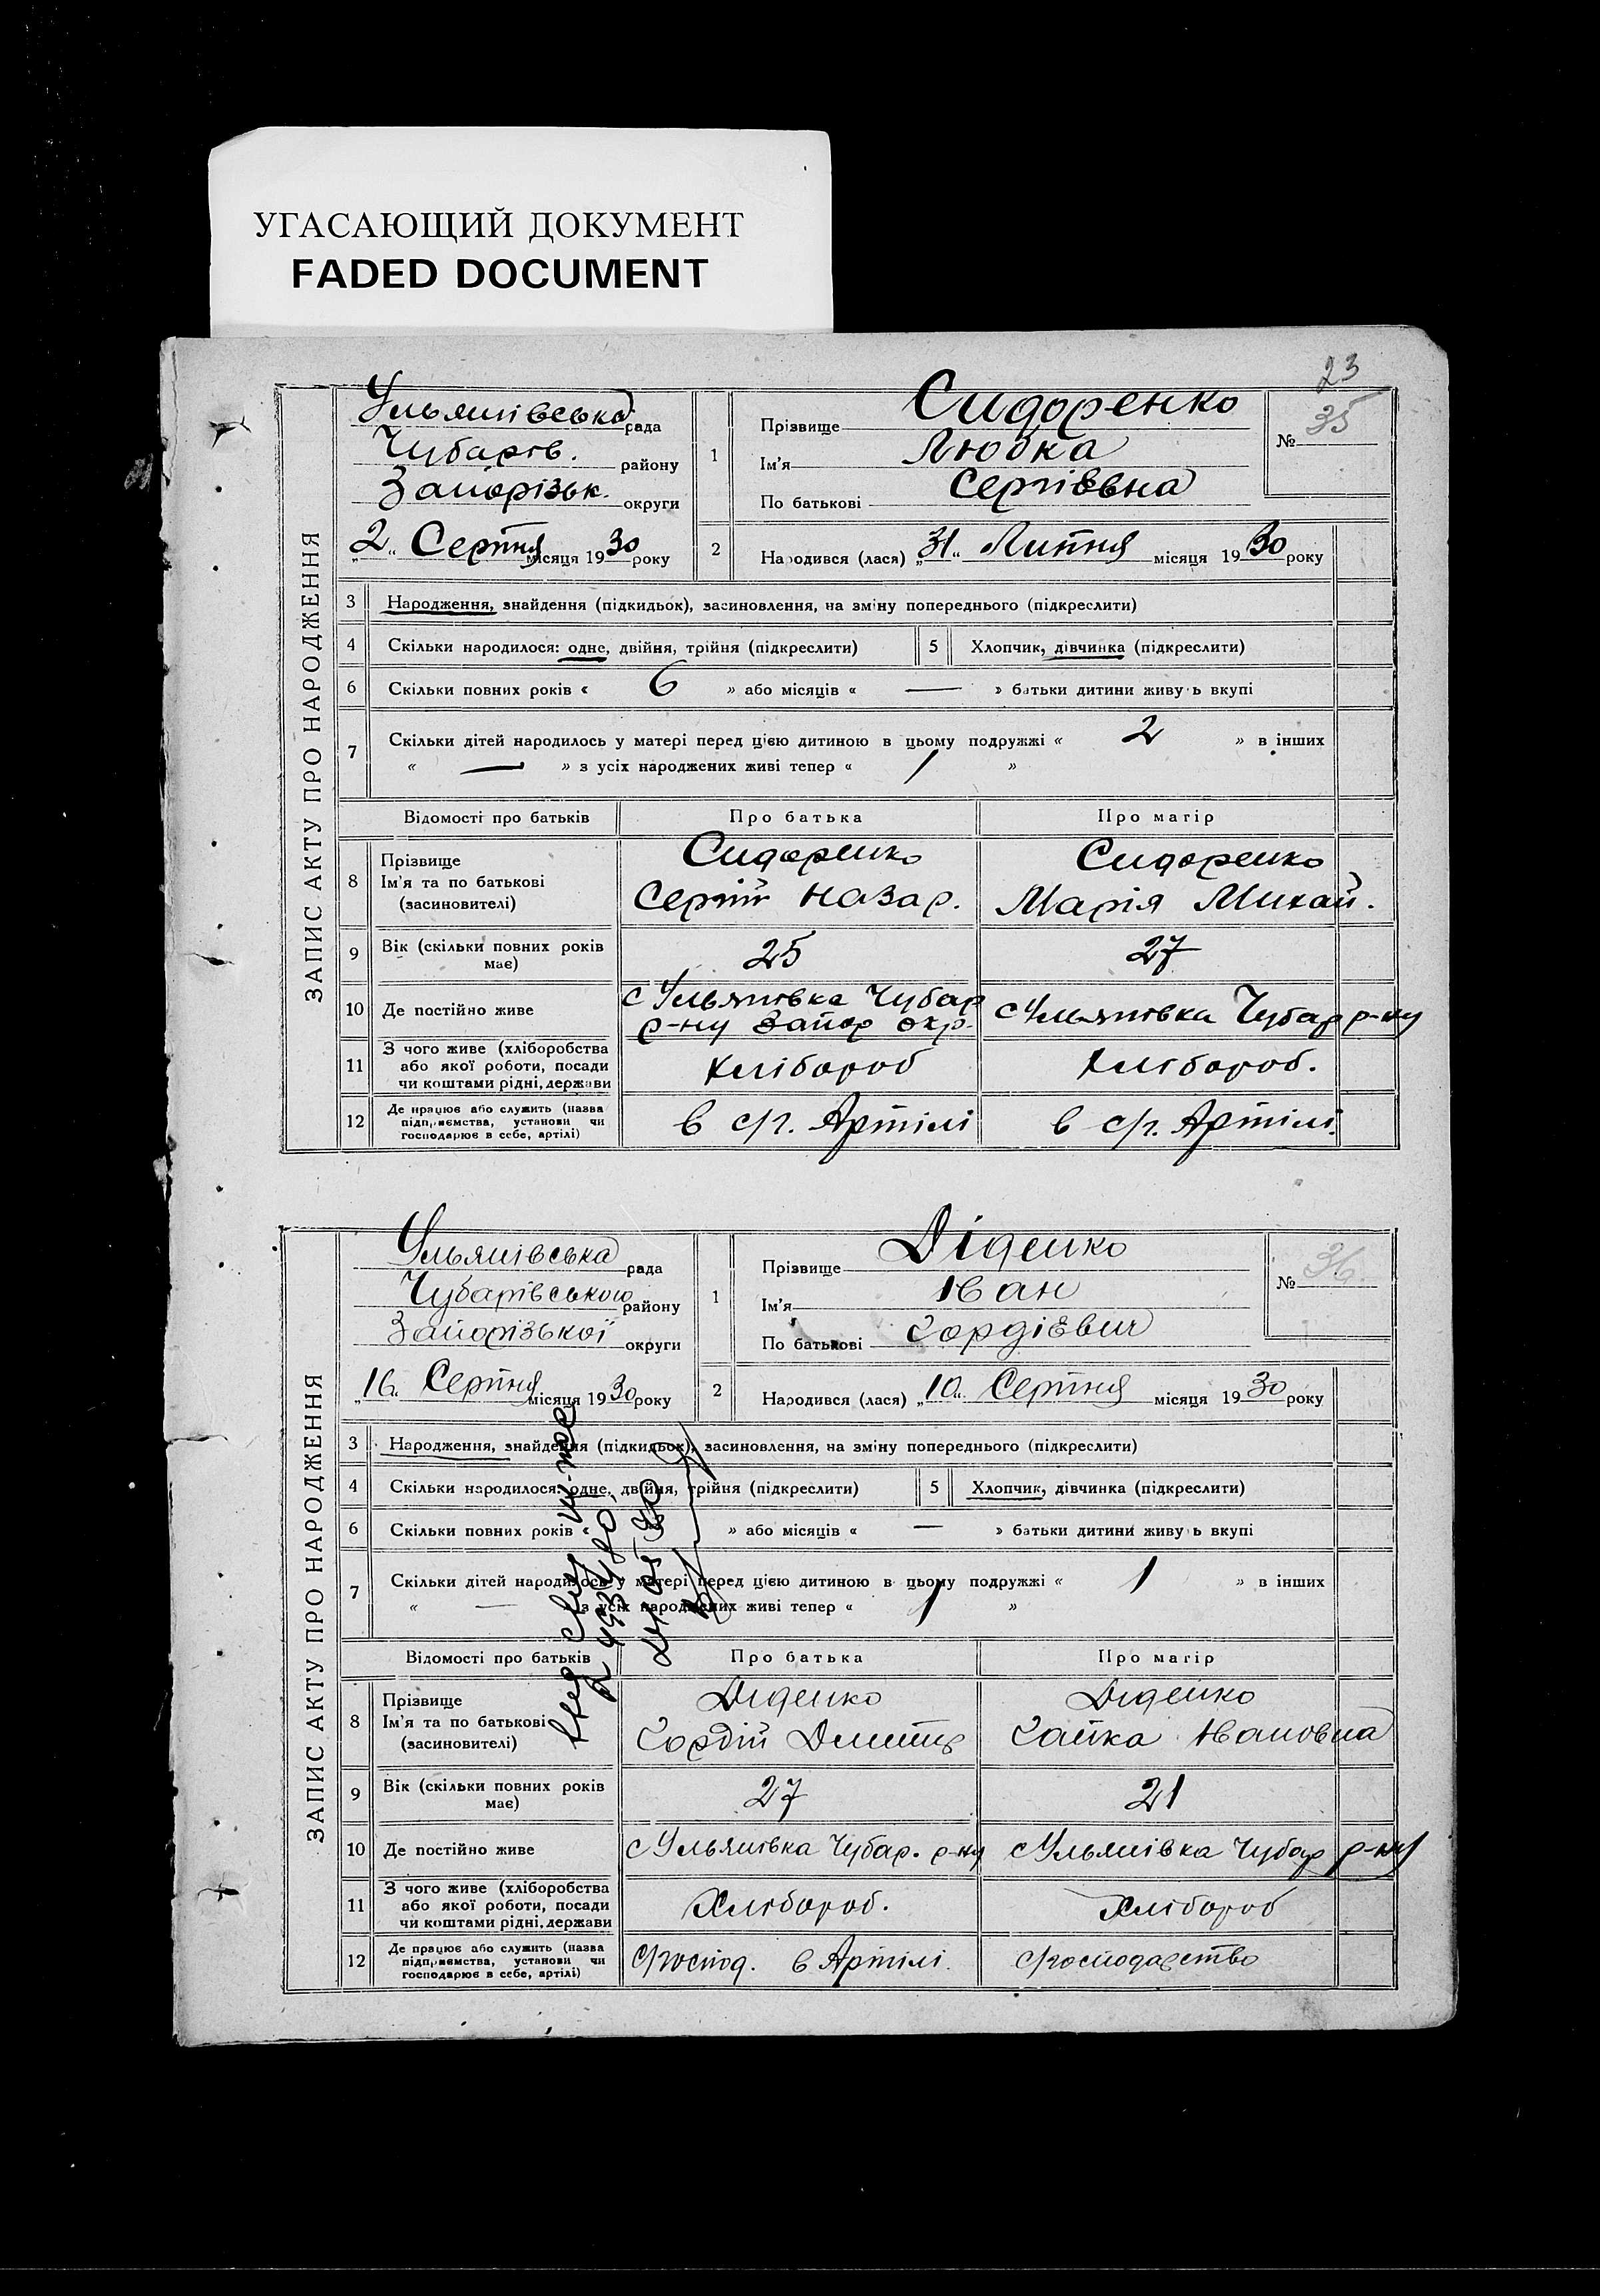 УГАСАЮЩИЙ ДОКУМЕНТ
FADED DOCUMENT
23
ЗАПИС АКТУ ПРО НАРОДЖЕННЯ
Ульянівська рада
Чубарів. району
Запорізьк. округи
„2" Серпня місяця 1930 року
1
Прізвище Сидоренко
Ім'я Любка
По батькові Сергіевна
№ 35
2
Народився (лася) „31" Липня місяця 1930 року
3 Народження, знайдення (підкидьок), засиновлення, на зміну попереднього (підкреслити)
4 Скільки народилося: одне, двійня, трійня (підкреслити) 5 Хлопчик, дівчинка (підкреслити)
6 Скільки повних років « 6 » або місяців « — » батьки дитини живуть вкупі
7 Скільки дітей народилось у матері перед цією дитиною в цьому подружжі « 2 » в інших
« — » з усіх народжених живі тепер « 1 »
Відомості про батьків Про батька Про матір
8 Прізвище
Ім'я та по батькові
(засиновителі)
Сидоренко
Сергій Назар.
Сидоренко
Марія Михай.
9 Вік (скільки повних років
має)
25 27
10 Де постійно живе
с Ульянівка Чубар
р-ну Запор окр.
с Ульянівка Чубар р-ну
11 З чого живе (хліборобства
або якої роботи, посади
чи коштами рідні, держави
Хлібороб Хлібороб.
12 Де працює або служить (назва
підприємства, установи чи
господарює в себе, артілі)
в с/г. Артілі в с/г. Артілі.
ЗАПИС АКТУ ПРО НАРОДЖЕННЯ
Ульянівська рада
Чубарівського району
Запорізької округи
„16" Серпня місяця 1930 року
1
Прізвище Діденко
Ім'я Іван
По батькові Гордіевич
№ 36.
2
Народився (лася) „10" Серпня місяця 1930 року
3 Народження, знайдення (підкидьок), засиновлення, на зміну попереднього (підкреслити)
4 Скільки народилося: одне, двійня, трійня (підкреслити) 5 Хлопчик, дівчинка (підкреслити)
6 Скільки повних років « » або місяців « — » батьки дитини живуть вкупі
7 Скільки дітей народилось у матері перед цією дитиною в цьому подружжі « 1 » в інших
« — » з усіх народжених живі тепер « 1 »
Відомості про батьків Про батька Про матір
8 Прізвище
Ім'я та по батькові
(засиновителі)
Діденко
Гордій Дмитр
Діденко
Гапка Івановна
9 Вік (скільки повних років
має)
27 21
10 Де постійно живе
с Ульянівка Чубар. р-ну с Ульянівка Чубар р-ну
11 З чого живе (хліборобства
або якої роботи, посади
чи коштами рідні, держави
Хлібороб. Хлібороб
12 Де працює або служить (назва
підприємства, установи чи
господарює в себе, артілі)
с/господ. в Артілі. с/господарство